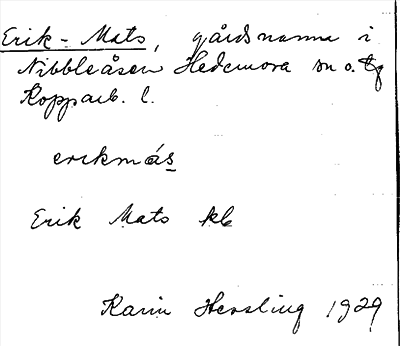 Erik-Mats, gårdsnamn i
Nibbleåsen Hedemora sn o. tg
Kopparb. l.
erikmás
Erik Mats kb
Karin Hessling 1929